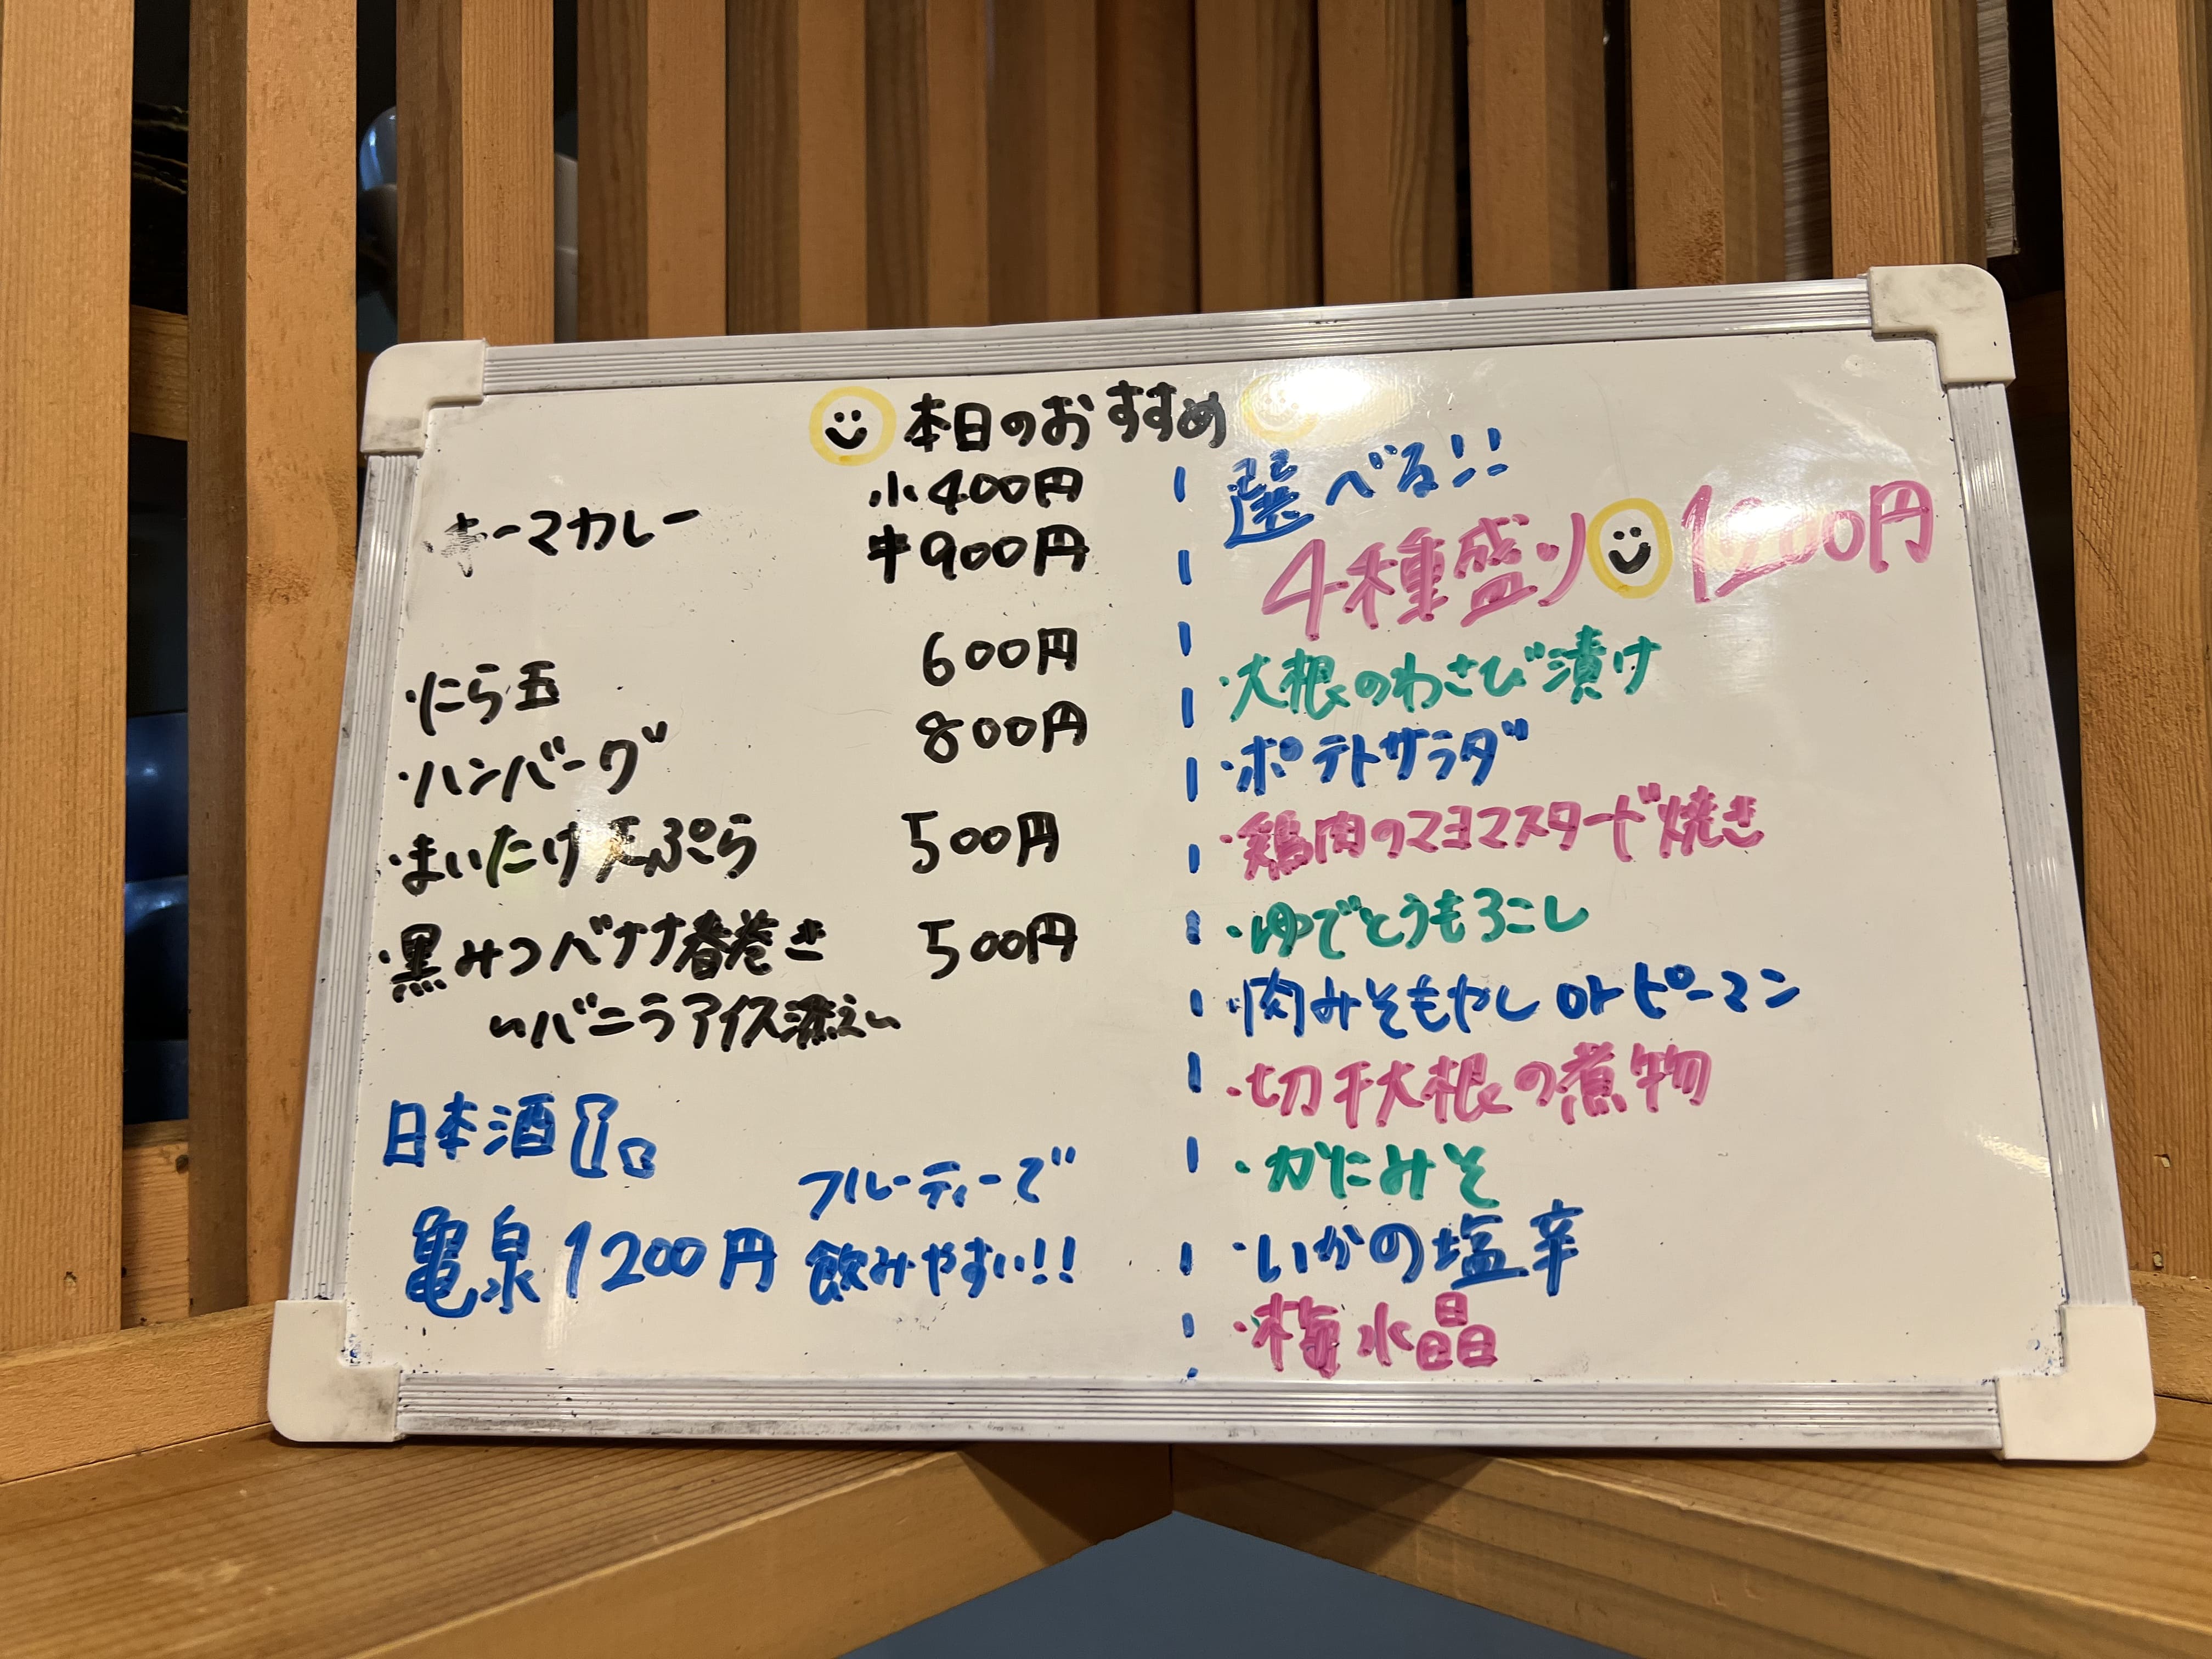 本日のおすすめ
キーマカレー 小400円
中900円
・にら玉 600円
・ハンバーグ 800円
・まいたけ天ぷら 500円
・黒みつバナナ春巻き 500円
〜バニラアイス添え〜
日本酒
亀泉 1200円 フルーティーで
飲みやすい!!
選べる!!
4種盛り 1200円
・大根のわさび漬け
・ポテトサラダ
・鶏肉のマヨマスタード焼き
・ゆでとうもろこし
・肉みそもやし or ピーマン
・切干大根の煮物
・かにみそ
・いかの塩辛
・梅水晶